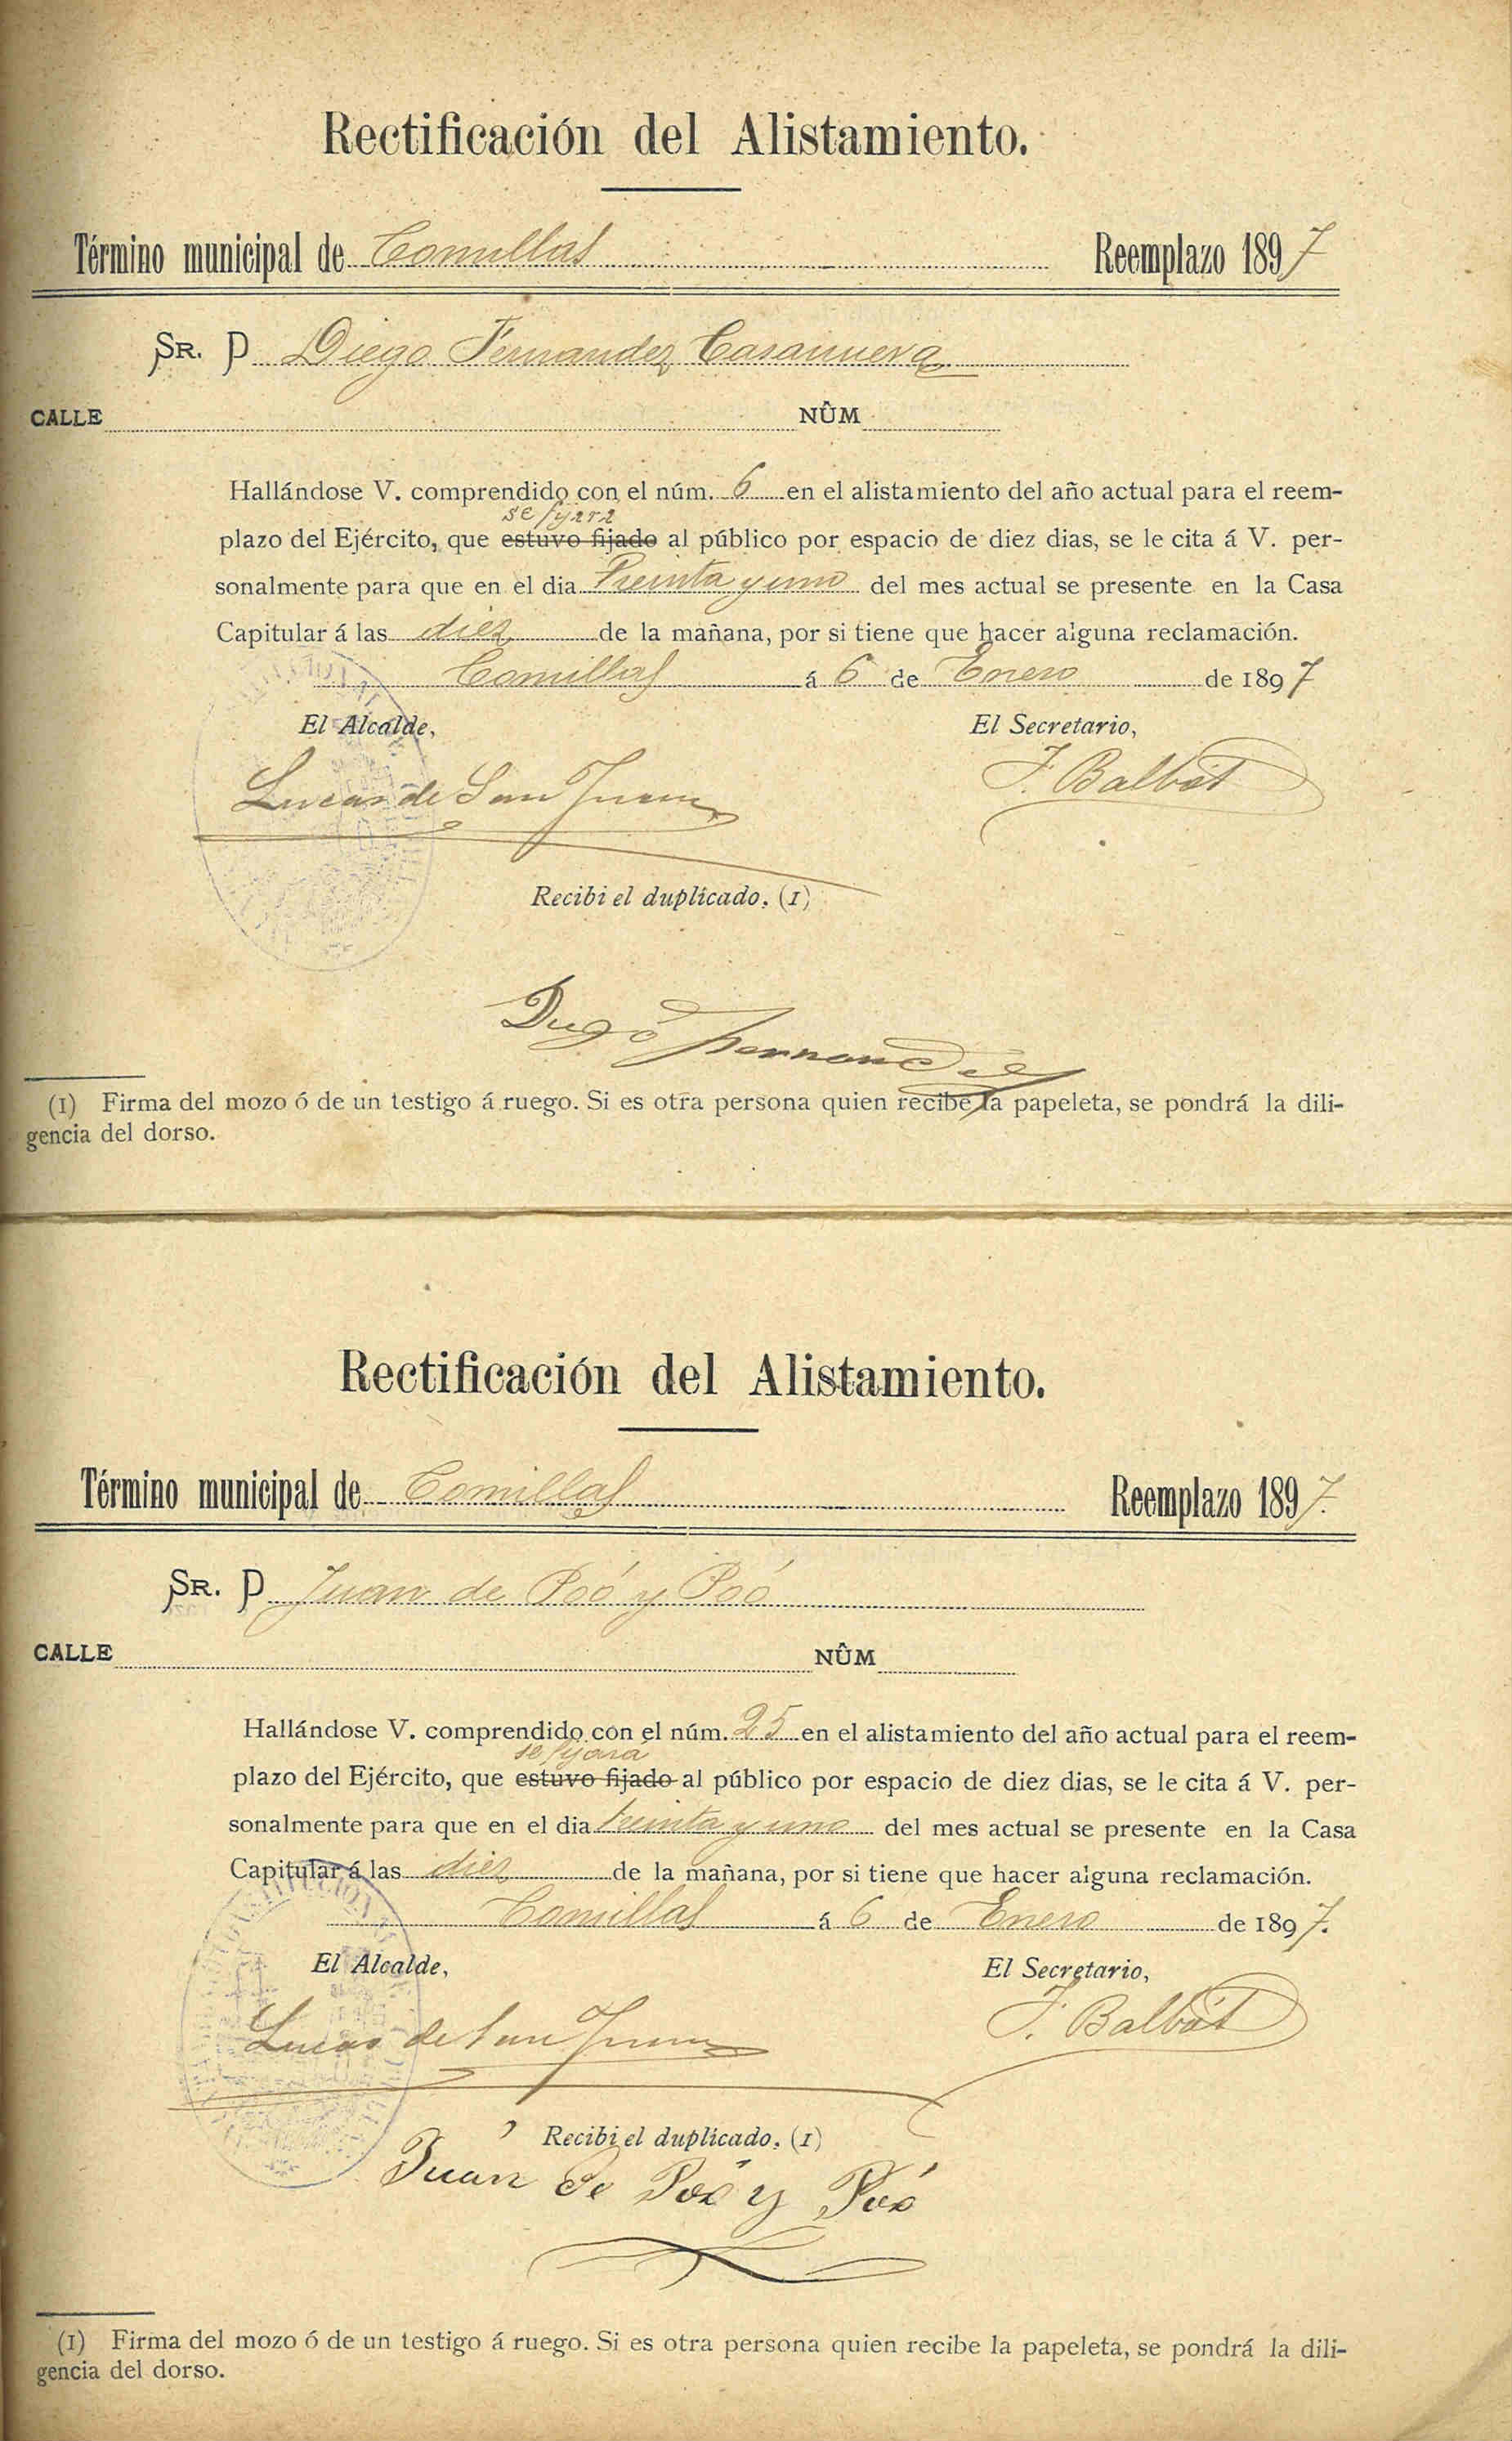 Rectificación del Alistamiento.
Término municipal de Comillas Reemplazo 1897
SR. D Diego Fernandez Casanueva
CALLE NÚM
Hallándose V. comprendido con el núm. 6 en el alistamiento del año actual para el reem-
se fijara
plazo del Ejército, que estuvo fijado al público por espacio de diez dias, se le cita á V. per-
sonalmente para que en el dia Treinta y uno del mes actual se presente en la Casa
Capitular á las diez de la mañana, por si tiene que hacer alguna reclamación.
Comillas á 6 de Enero de 1897
El Alcalde, El Secretario,
Lucas de San Juan J. Balbát
Recibi el duplicado. (1)
Diego Hernandez
(1) Firma del mozo ó de un testigo á ruego. Si es otra persona quien recibe la papeleta, se pondrá la dili-
gencia del dorso.
Rectificación del Alistamiento.
Término municipal de Comillas Reemplazo 1897.
SR. D Juan de Poó y Poó
CALLE NÚM
Hallándose V. comprendido con el núm. 25 en el alistamiento del año actual para el reem-
se fijará
plazo del Ejército, que estuvo fijado al público por espacio de diez dias, se le cita á V. per-
sonalmente para que en el dia treinta y uno del mes actual se presente en la Casa
Capitular á las diez de la mañana, por si tiene que hacer alguna reclamación.
Comillas á 6 de Enero de 1897.
El Alcalde, El Secretario,
Lucas de San Juan J. Balbát
Recibi el duplicado. (1)
Juan de Poó y Poó
(1) Firma del mozo ó de un testigo á ruego. Si es otra persona quien recibe la papeleta, se pondrá la dili-
gencia del dorso.